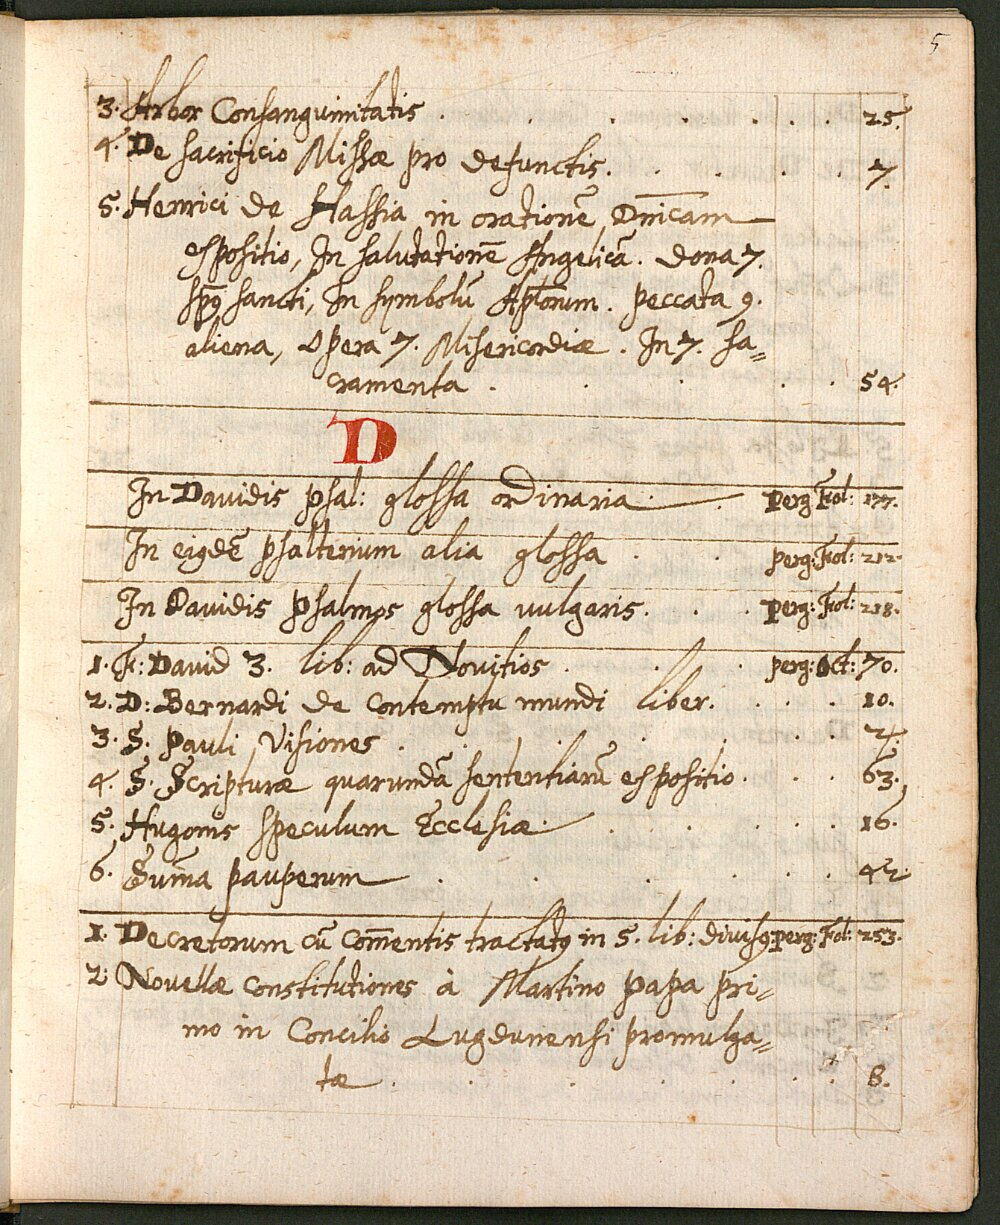 5
3. Arbor Consanguinitatis . . . . 25.
4. De sacrificio Missæ pro defunctis. . . . 7.
5. Henrici de Hassia in orationē Dnīcam
espositio, In salutationē Angelicā. Dona 7.
spūs sancti, In symbolū Aplōrum. peccata 9.
aliena, Opera 7. Misericordiæ. In 7. sa=
cramenta . . . . . 54.
D
In Dauidis psal: glossa ordinaria. . perg. Fol: 177.
In eiusdē psalterium alia glossa . perg: Fol: 212.
In Dauidis Psalmos glossa uulgaris. . . perg: Fol: 218.
1. Fr: David 3. lib: ad Novitios . . perg: Oct: 70.
2. D: Bernardi de contemptu mundi liber. . . . 10.
3. S. Pauli Visiones . . . 24.
4. S. Scripturæ quarundā sententiarū espositio. . . 63.
5. Hugonis speculum Ecclesiæ. . . . . . 16.
6. Sum̄a pauperum . . . . . . 42.
1. Decretorum cū Com̄entis tractatus in 5. lib: divisus. perg: Fol: 253.
2. Novellæ constitutiones à Martino Papa pri=
mo in Concilio Lugdunensi promulga=
tæ . . . . . . 8.